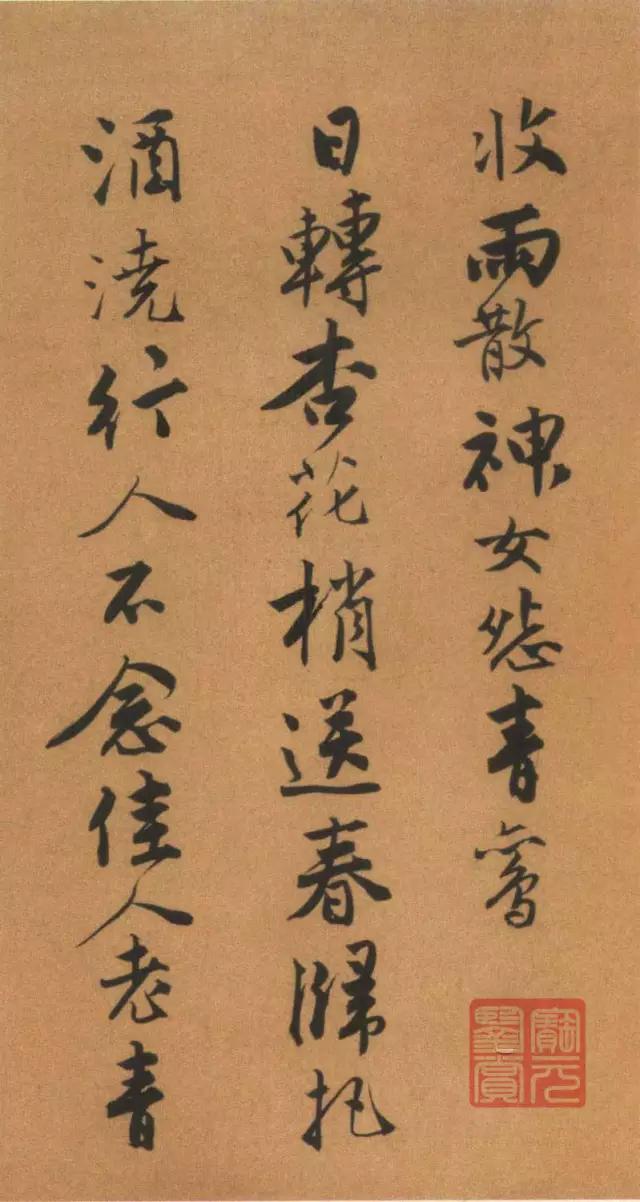 收雨散神女青鸞
日轉杏花梢送春歸把
酒澆行人不念佳人老青
鑒賞